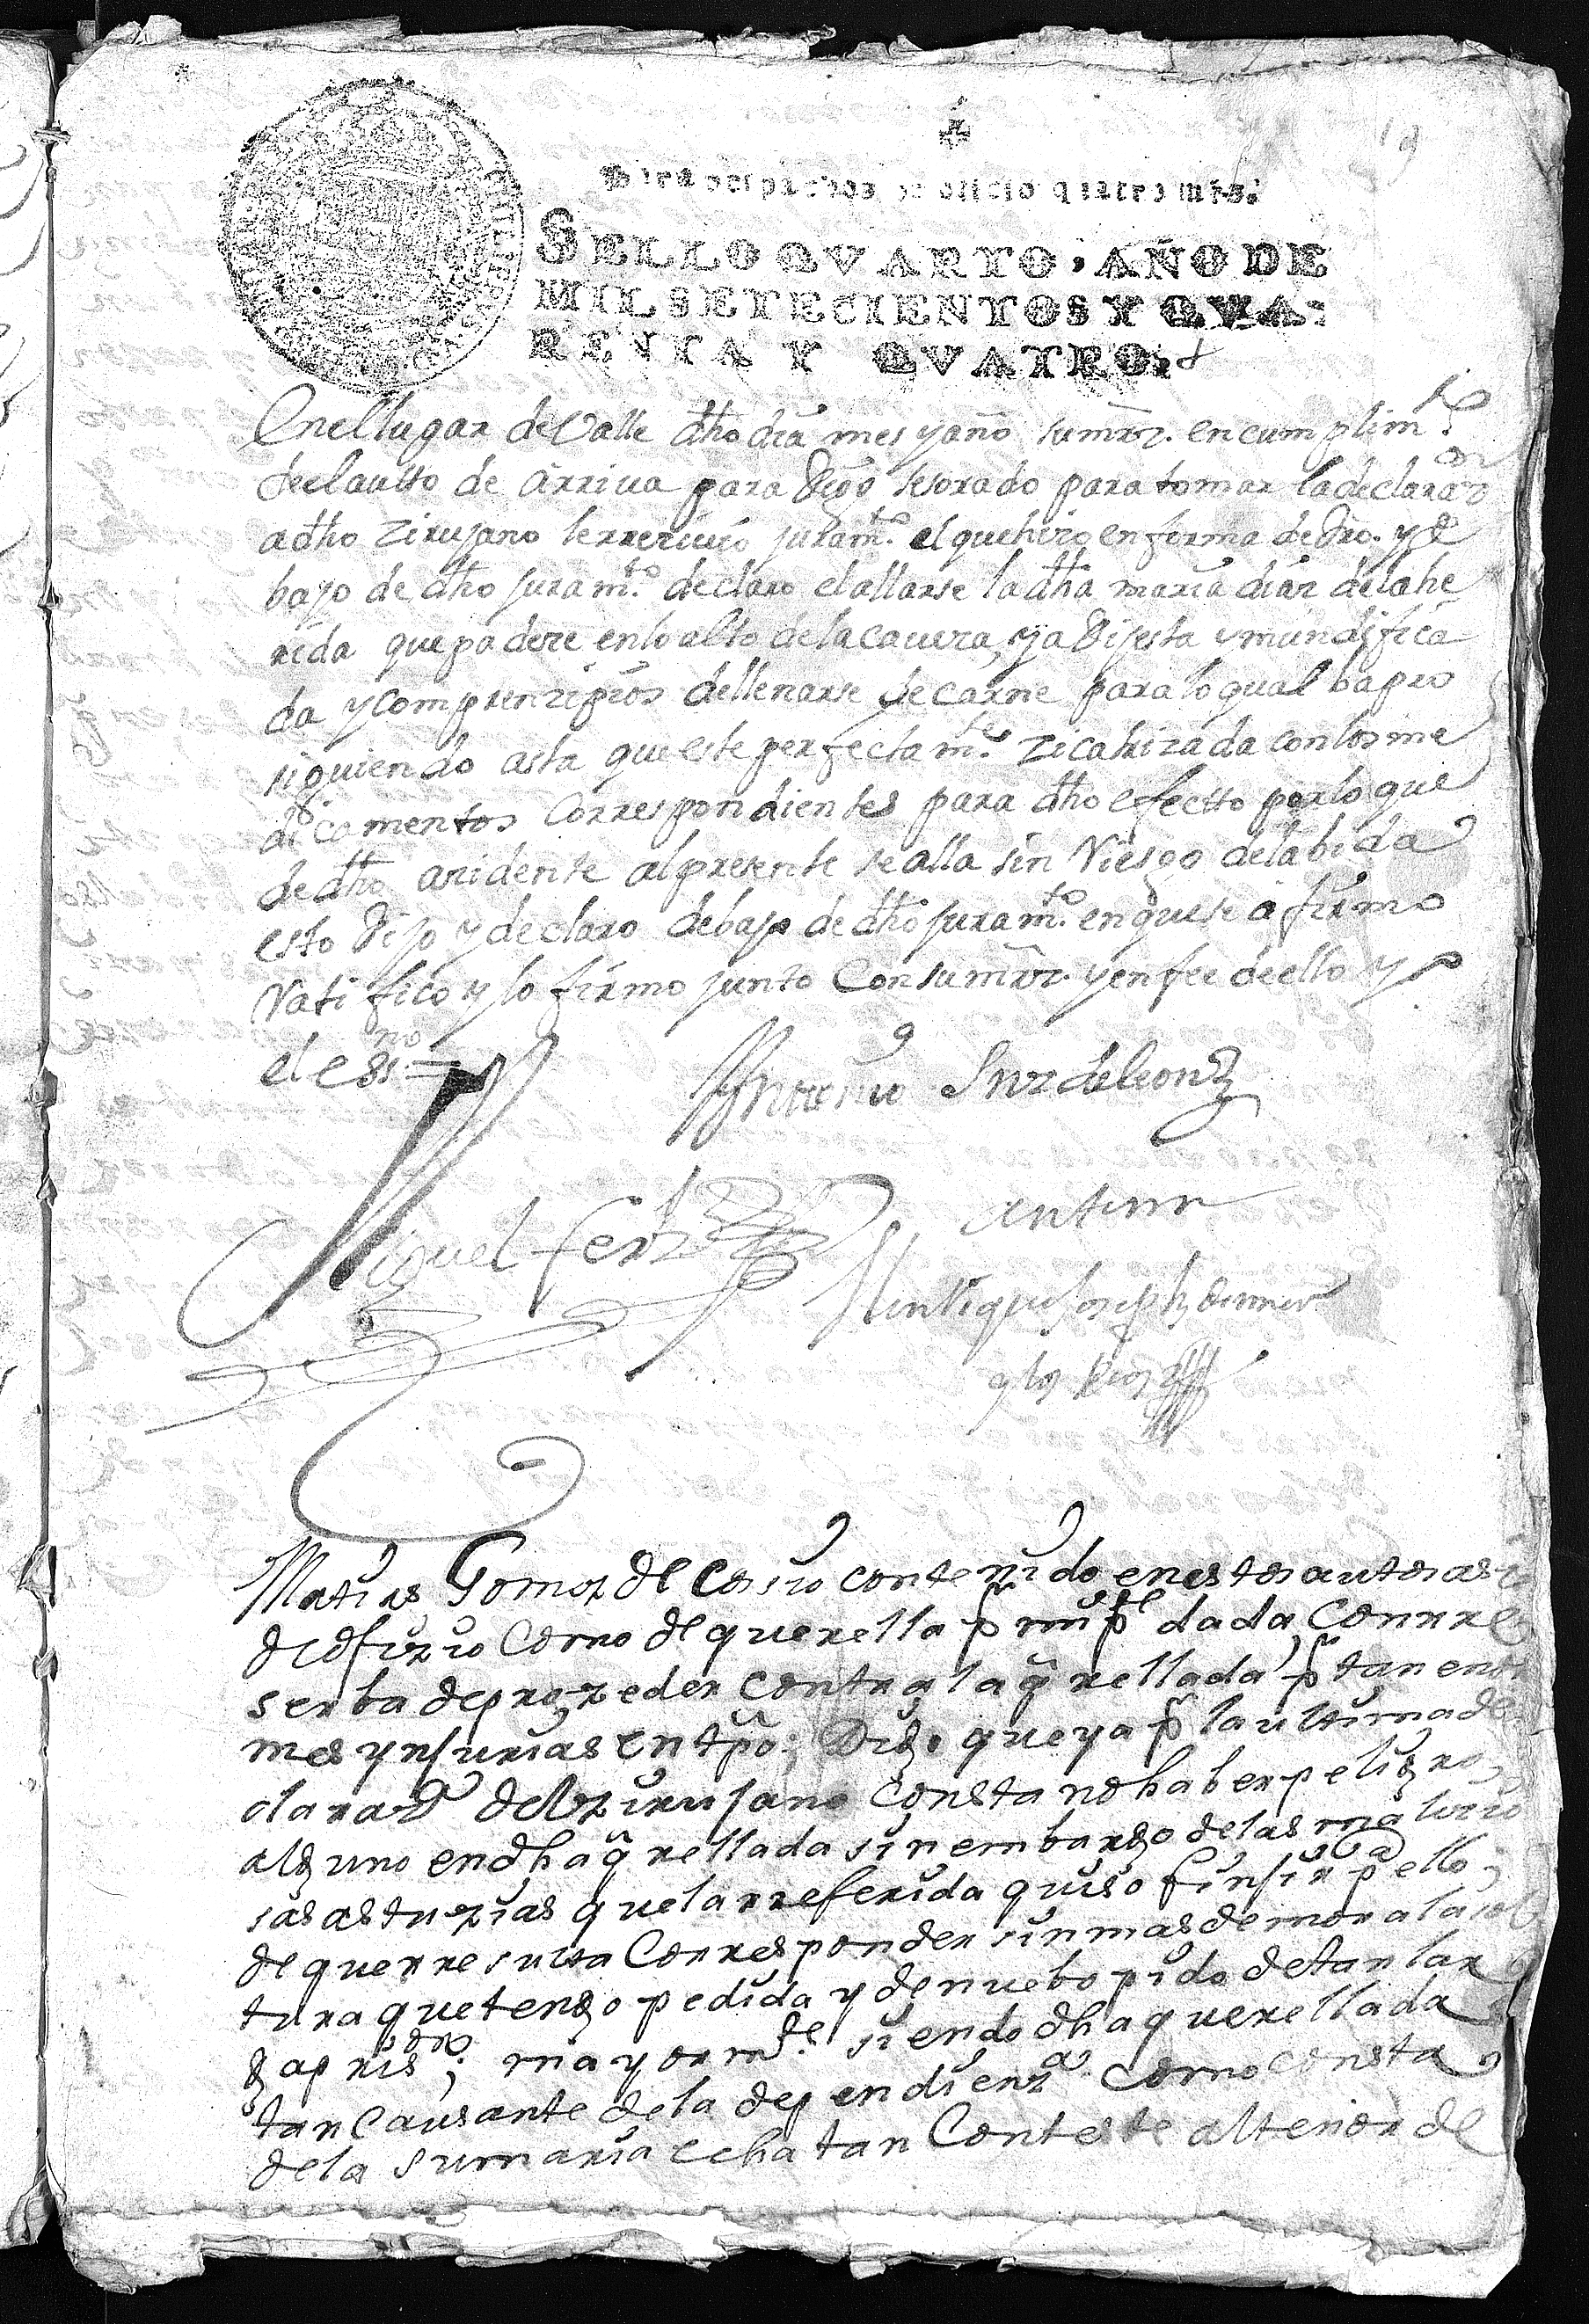 19
Para despachos de oficio quatro mrs.
SELLO QVARTO, AÑO DE
MIL SETECIENTOS Y QVA-
RENTA Y QVATRO.
En el lugar de Valle dho dia mes y año sumrz. en cumplimto
de el autto de arriua para tomar la declaraon
a dho zirujano le rreziuio juramto. el que hizo en forma de dro. y de
bajo de dho juramto. declaro el allarse la dha maria diaz de la he
rida que padeze en lo alto de la caueza, ya dijesta y mundifica
da y com prenzipios de llenarse de carne para lo qual ba pro
siguiendo asta que este perfectamte. zicatrizada con los me
dicamentos Correspondientes para dho efectto por lo que
de dho azidente al presente se alla sin Riesgo de la bida
esto dijo y declaro debajo de dho juramto. en que se afirmo
Ratifico y lo firmo junto Con sumrz. y en fee de ello yo
el essno =
Antonio Snz de leon
Miguel ferz
Antemi
Joseph
y los Rios
Matias Gomez de Cosio contenido en estos autos asi
de ofizio Como de querella pr mi pte dada Con rre
serba de prozeder contra la qrellada, pr tan enor
mes ynjurias en tpo; Digo que ya pr la ultima de
claraon del zirujano Consta no haber peligro
alguno en dha qrellada sin embargo de las malizio
sas astuzias que la rreferida quiso finjir pa ello;
de que rresulta Corresponder sin mas demora la sol
tura que tengo pedida y de nuebo pido de tan lar
ga prison; mayormte. siendo dha querellada
tan Causante de la dependienza Como consta
de la sumaria echa tan Conteste al tenor de